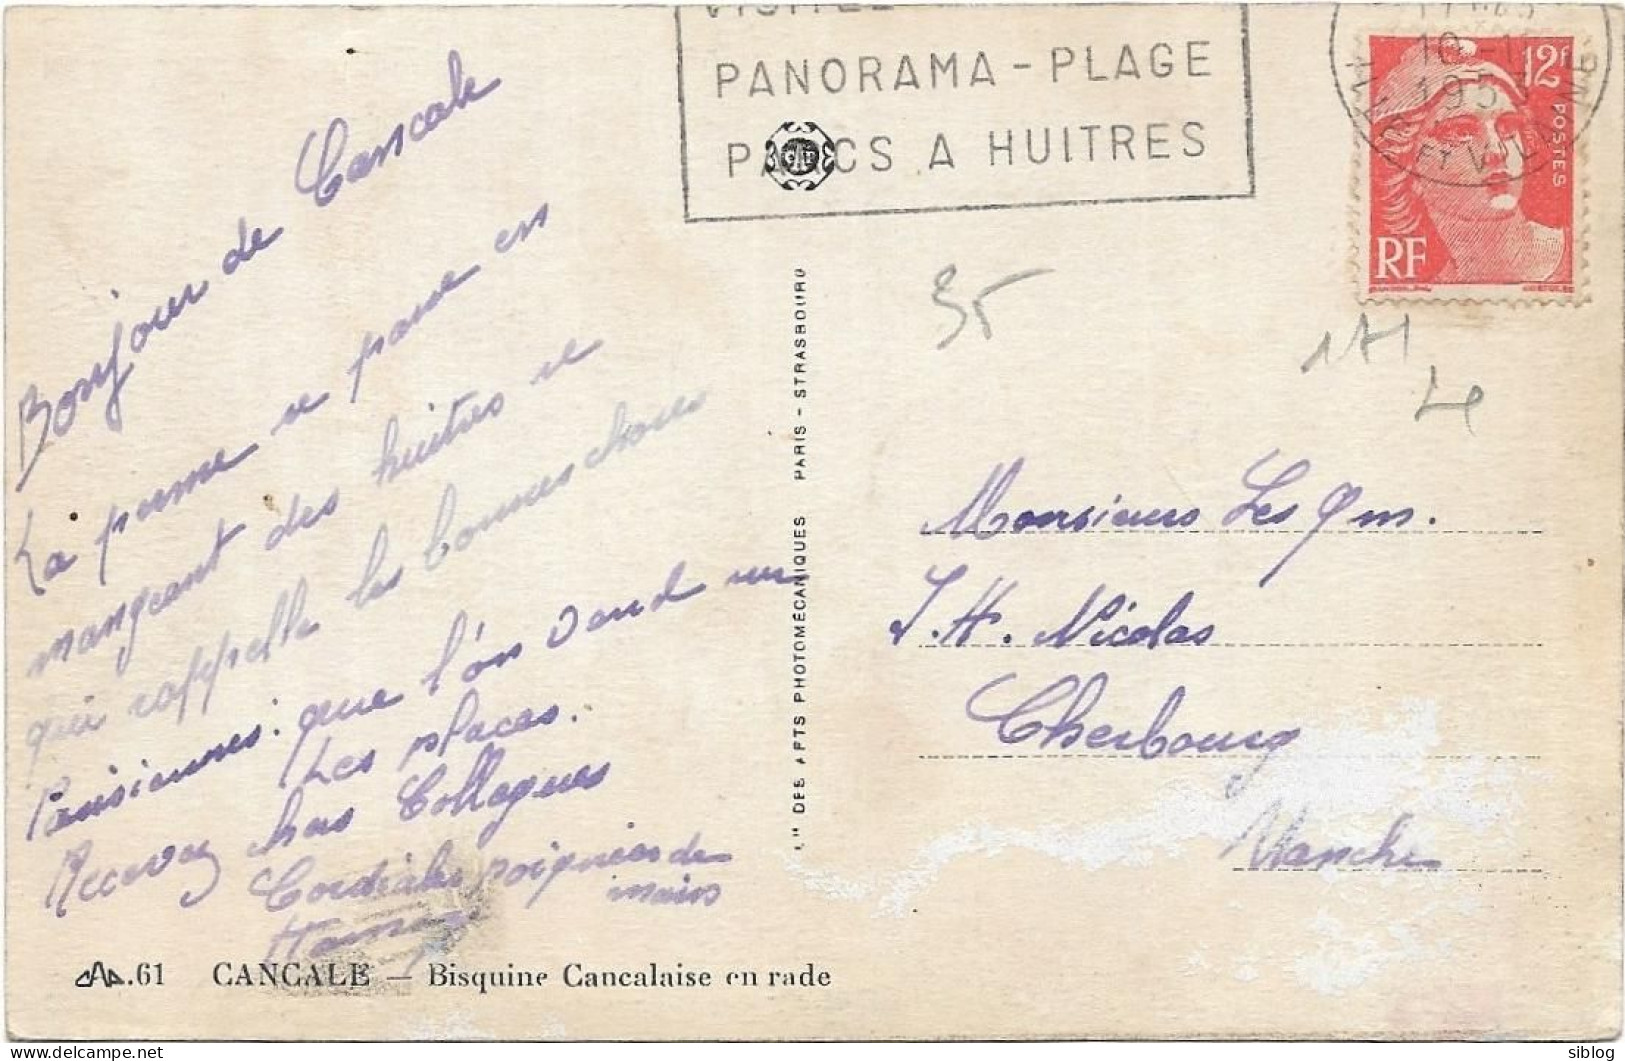 PANORAMA - PLAGE
PARCS A HUITRES
1953
ILLE ET VIL
12F
POSTES
RF
Bonjour de Cancale
La se passe en
mangeant des huitres se
qui rappelle les bonnes choses
Parisiennes. que l'on vend sur
Les places.
Recevez chers Collegues
Cordiales poignées de
mains
35
Monsieurs Les
J. H. Nicolas
Cherbourg
Manche
DES ARTS PHOTOMÉCANIQUES PARIS - STRASBOURG
.61 CANCALE — Bisquine Cancalaise en rade
siblog